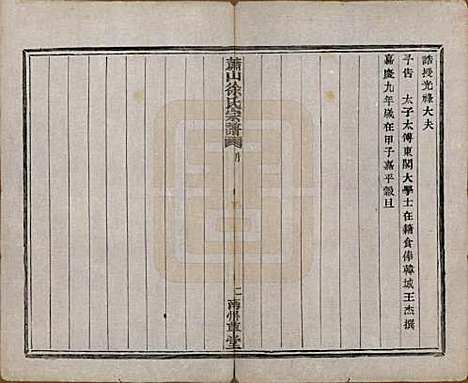 誥授光祿大夫
予告　太子太傅東閣大學士在籍食俸韓城王杰撰
嘉慶九年歲在甲子嘉平穀旦
蕭山徐氏宗譜
南州草堂